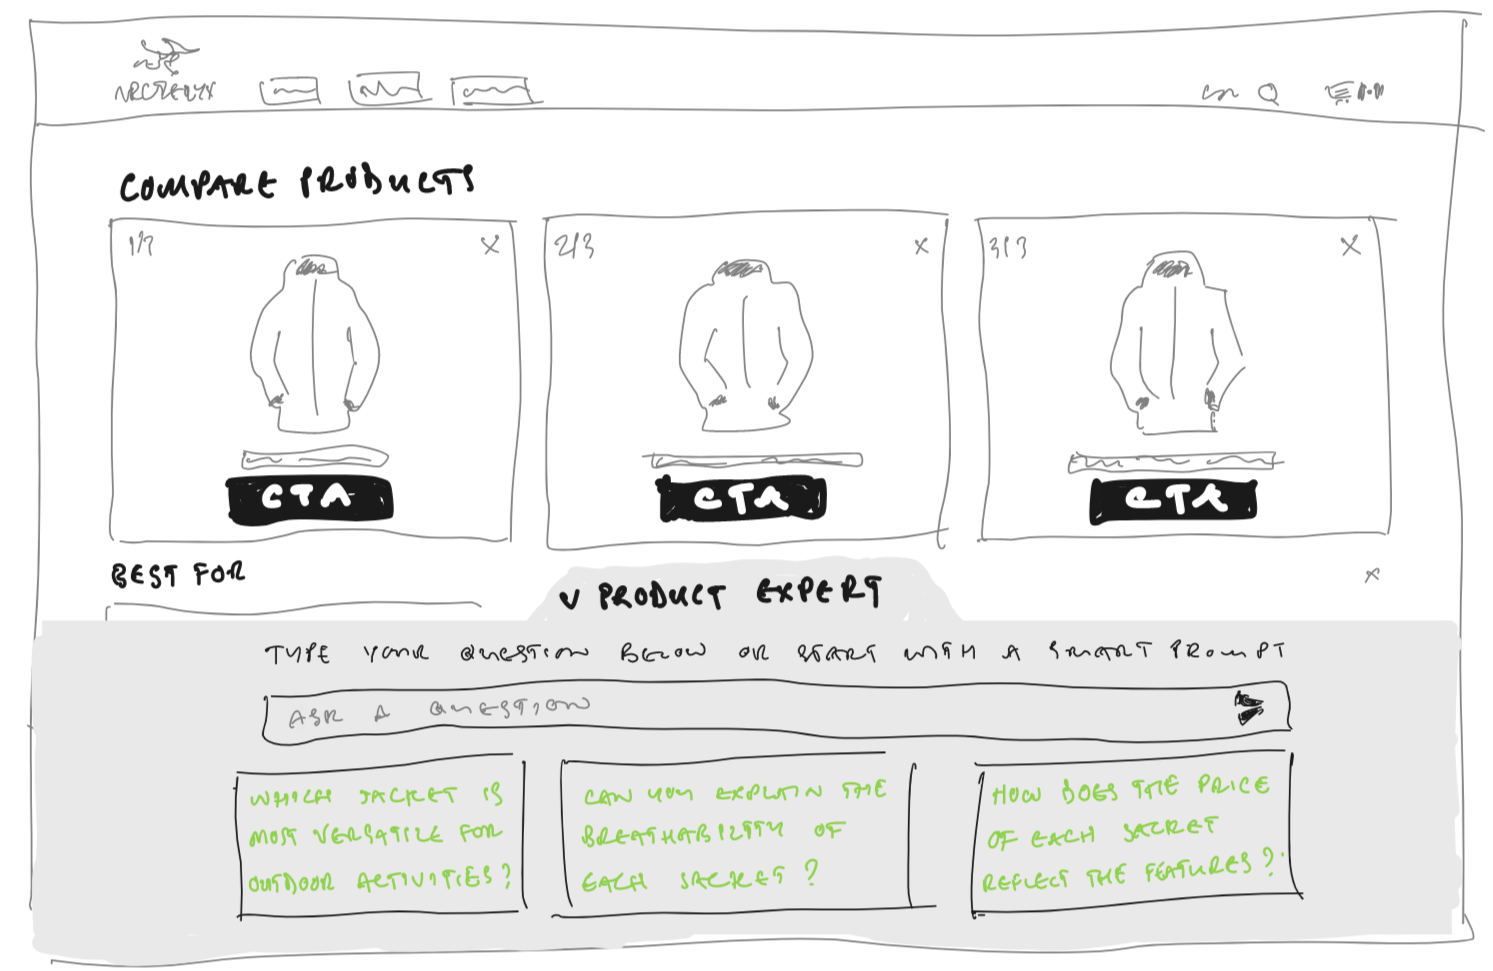 ARCTERYX
COMPARE PRODUCTS
1/3
X
2/3
X
3/3
X
CTA
CTA
CTA
BEST FOR
X
V PRODUCT EXPERT
TYPE YOUR QUESTION BELOW OR START WITH A SMART PROMPT
ASK A QUESTION
WHICH JACKET IS
MOST VERSATILE FOR
OUTDOOR ACTIVITIES?
CAN YOU EXPLAIN THE
BREATHABILITY OF
EACH JACKET?
HOW DOES THE PRICE
OF EACH JACKET
REFLECT THE FEATURES?